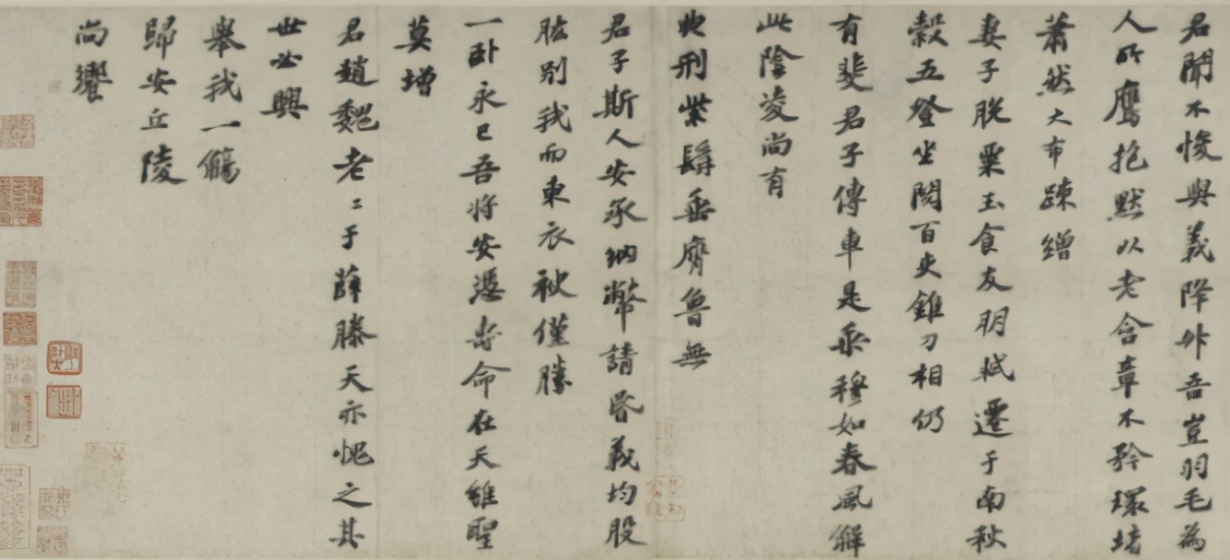 君聞不悛與義降升吾豈羽毛為
人所鷹抱默以老含章不矜環堵
蕭然大布疎繒
妻子脫粟玉食友朋軾遷于南秋
穀五登坐閱百吏錐刀相仍
有斐君子傳車是乘穆如春風解
此陰凌尚有
典刑紫髯垂膺魯無
君子斯人安承納幣請昏義均股
肱別我而東衣袂僅勝
一卧永已吾將安憑壽命在天雖聖
莫增
君趙魏老〻于薛滕天亦愧之其
世必興
舉我一觴
歸安丘陵
尚饗